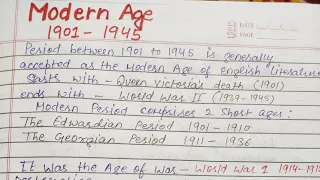 Modern Age
1901 - 1945
DATE
Period between 1901 to 1945 is generally
accepted as the Modern Age of English literature
Starts with - Queen Victoria's death (1901)
ends with - World War II (1939-1945)
Modern Period comprises 2 Short ages:
The Edwardian Period 1901 - 1910
The Georgian Period 1911 - 1936
It was the Age of war - World War 1 1914-191